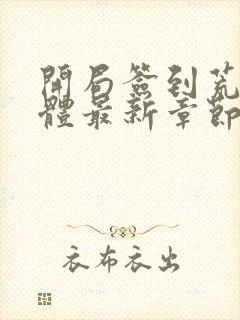 開局簽到荒
體最新章節
衣布衣出